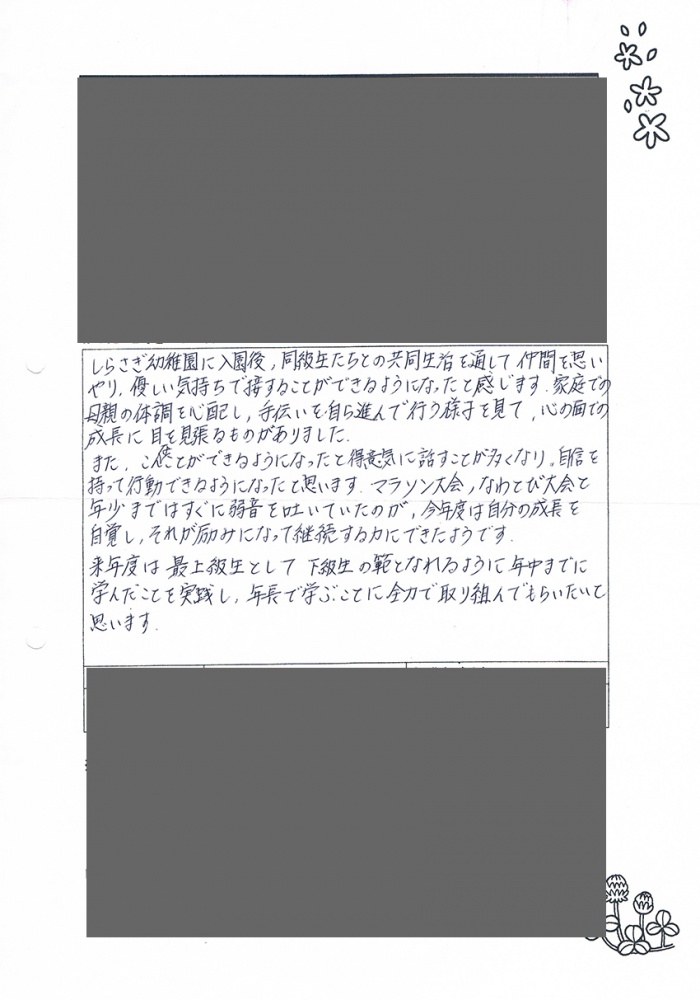 しらさぎ幼稚園に入園後、同級生たちとの共同生活を通して仲間を思い
やり、優しい気持ちで接することができるようになったと感じます。家庭での
母親の体調を心配し、手伝いを自ら進んで行う様子を見て、心の面での
成長に目を見張るものがありました。
また、こんなことができるようになったと得意気に話すことが多くなり。自信を
持って行動できるようになったと思います。マラソン大会、なわとび大会と
年少まではすぐに弱音を吐いていたのが、今年度は自分の成長を
自覚し、それが励みになって継続する力にできたようです。
来年度は最上級生として下級生の範となれるように年中までに
学んだことを実践し、年長で学ぶことに全力で取り組んでもらいたいと
思います。